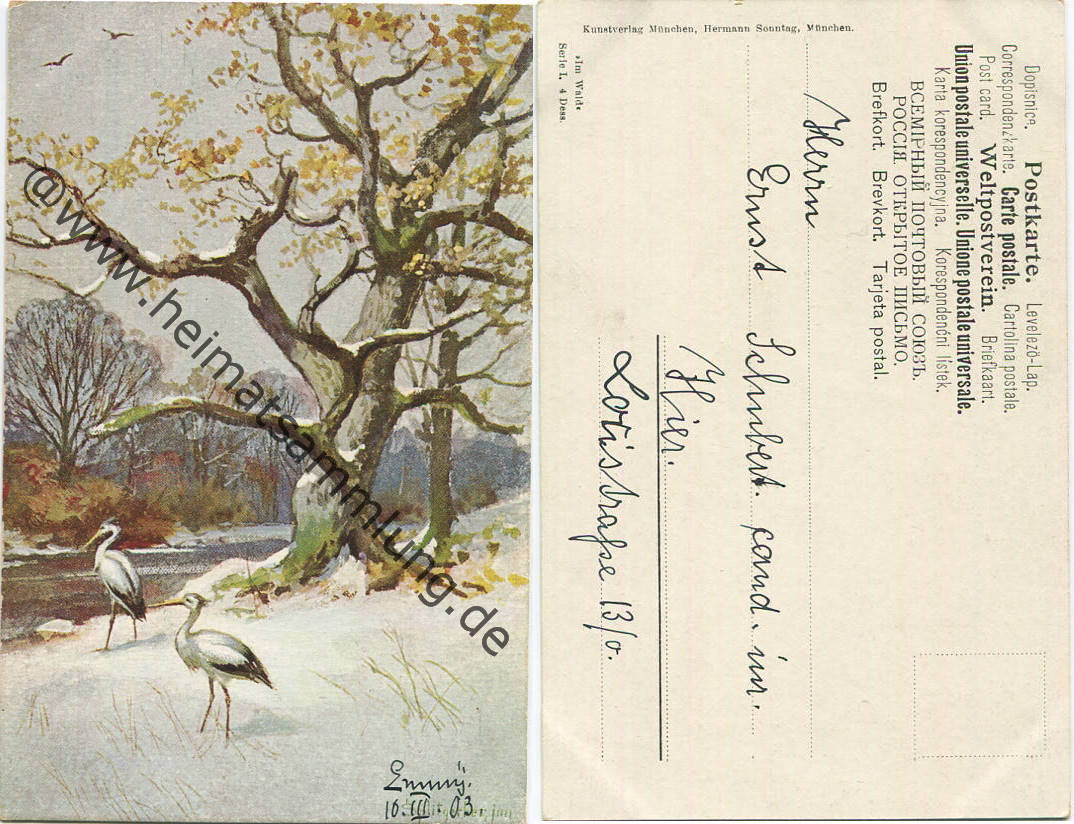 @www.heimatsammlung.de
Emmy.
10.III.03.
Kunstverlag München, Hermann Sonntag, München.
»Im Wald«
Serie I. 4 Dess.
Dopisnice. Postkarte. Levelező-Lap.
Correspondenzkarte. Carte postale. Cartolina postale.
Post card. Weltpostverein. Briefkaart.
Union postale universelle. Unione postale universale.
Karta korespondencyjna. Korespondenční lístek.
ВСЕМІРНЫЙ ПОЧТОВЫЙ СОЮЗЪ.
РОССІЯ. ОТКРЫТОЕ ПИСЬМО.
Brefkort. Brevkort. Tarjeta postal.
Herrn
Ernst Schubert. cand. iur.
Hier.
Lotistraße 13/0.